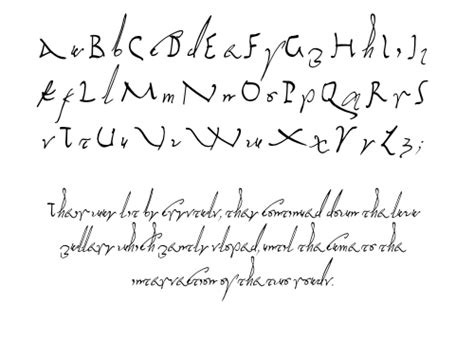 A a B b C c D d E e F f G g H h I i J j
K k L l M m N n O o P p Q q R r S
s T t U u V v W w X x Y y Z z ;
They were lit by crystals, they continued down the
gallery which gently sloped, until came to the
intersection of the two roads.